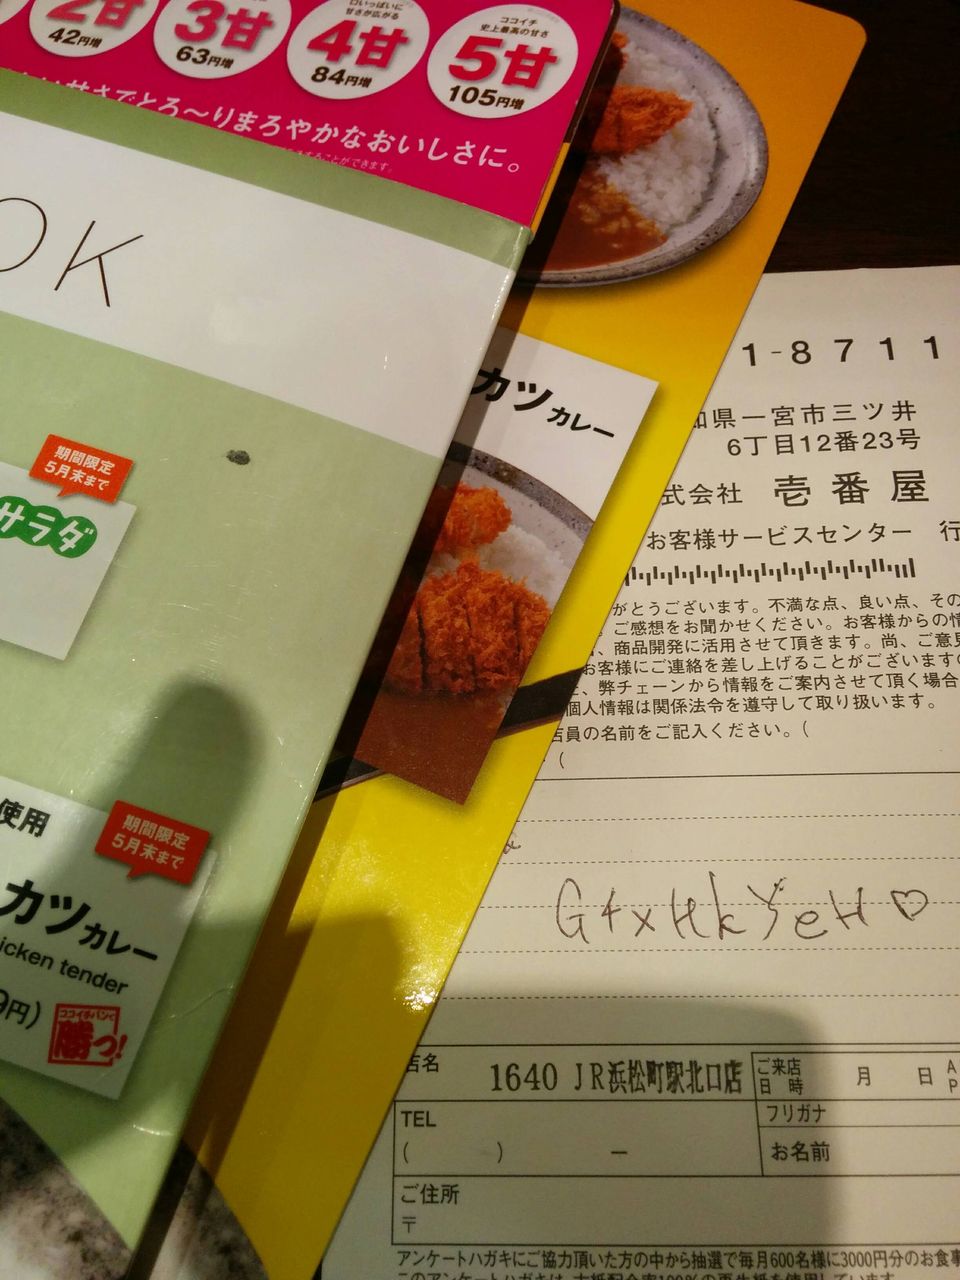 2甘
42円増
3甘
63円増
口いっぱいに
甘さが広がる
4甘
84円増
ココイチ
史上最高の甘さ
5甘
105円増
甘さでとろ〜りまろやかなおいしさに。
することができます。
OK
期間限定
5月末まで
サラダ
使用
期間限定
5月末まで
カツカレー
icken tender
9円)
ココイチパンで
勝つ!
カツカレー
1-8711
知県一宮市三ツ井
6丁目12番23号
式会社 壱番屋
お客様サービスセンター 行
がとうございます。不満な点、良い点、その
ご感想をお聞かせください。お客様からの情
、商品開発に活用させて頂きます。尚、ご意見
お客様にご連絡を差し上げることがございますの
、弊チェーンから情報をご案内させて頂く場合
個人情報は関係法令を遵守して取り扱います。
店員の名前をご記入ください。(
(
G4xHkYeH♡
店名
1640 JR浜松町駅北口店
ご来店
日 時
月 日
A
P
TEL
( ) ー
フリガナ
お名前
ご住所
〒
アンケートハガキにご協力頂いた方の中から抽選で毎月600名様に3000円分のお食事
このアンケートハガキは、古紙配合率100%の再生紙を使用しています